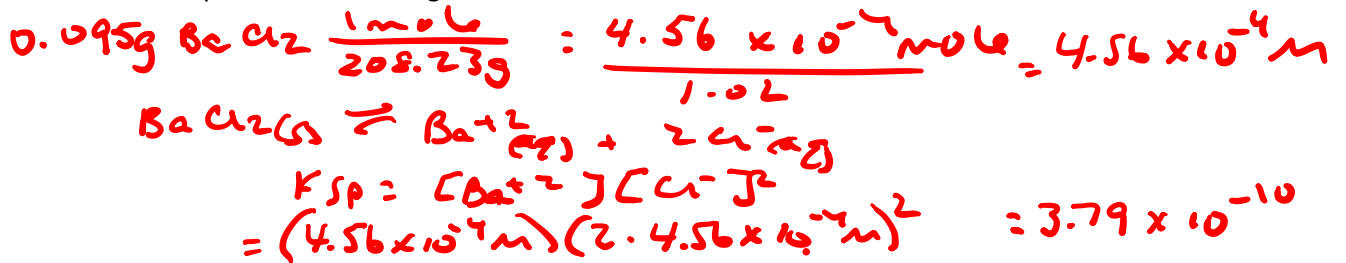 0.095g BaCl2 1mole / 208.23g : 4.56 x10^-4 mole / 1.0L = 4.56 x10^-4 M
BaCl2(s) ⇌ Ba^+2(aq) + 2Cl^-(aq)
Ksp = [Ba^+2][Cl^-]^2
= (4.56x10^-4 M)(2·4.56x10^-4 M)^2 = 3.79 x 10^-10